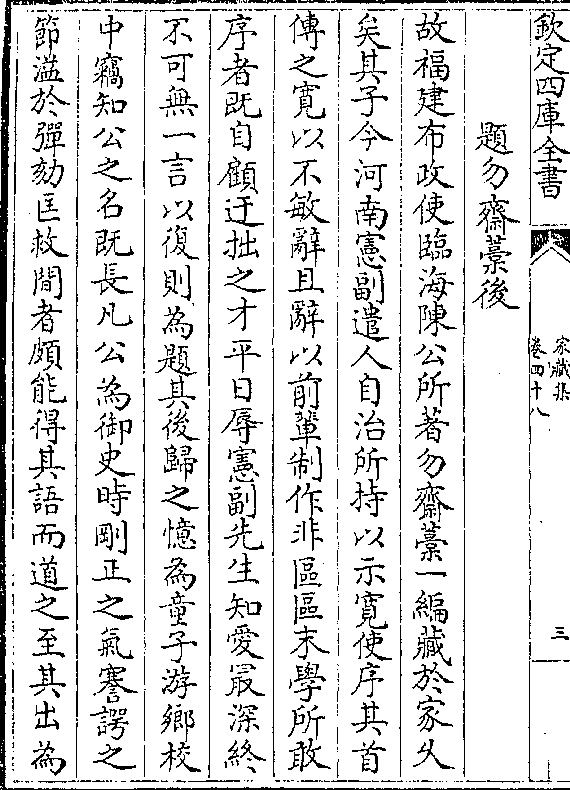 欽定四庫全書
家藏集
卷四十八
三
題勿齋藁後
故福建布政使臨海陳公所著勿齋藁一編藏於家乆
矣其子今河南憲副遣人自治所持以示寛使序其首
傳之寛以不敏辭且辭以前輩制作非區區末學所敢
序者既自顧迂拙之才平日辱憲副先生知愛最深終
不可無一言以復則為題其後歸之憶為童子游鄉校
中竊知公之名既長凡公為御史時剛正之氣謇諤之
節溢於彈劾匡救間者頗能得其語而道之至其出為